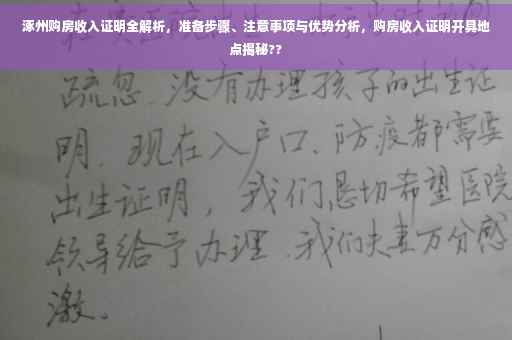 涿州购房收入证明全解析，准备步骤、注意事项与优势分析，购房收入证明开具地
点揭秘??
疏忽.没有办理孩子的出生证
明.现在入户口、防疫都需要
出生证明，我们恳切希望医院
领导给予办理.我们夫妻万分感
激。